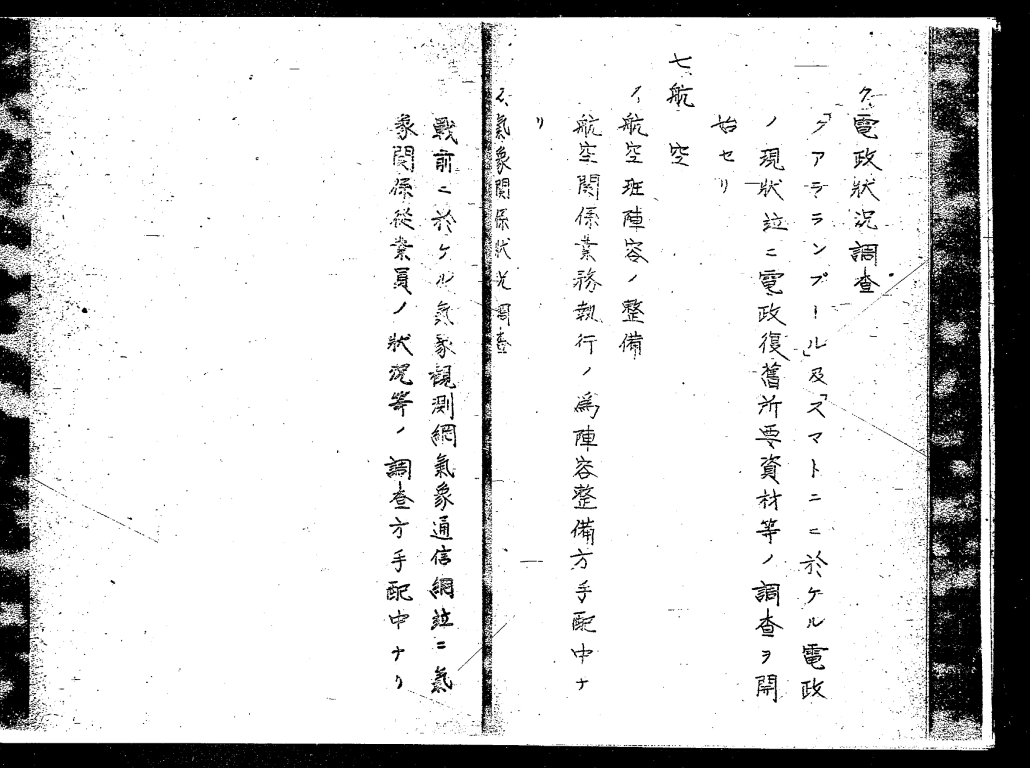 ク、電政狀況調査
「クアラランプール」及「スマトニニ於ケル電政
ノ現狀竝ニ電政復舊所要資材等ノ調査ヲ開
始セリ
七、航空
イ、航空班陣容ノ整備
航空關係業務執行ノ爲陣容整備方手配中ナ
リ
ロ、氣象關係狀況調査
戰前ニ於ケル氣象觀測網氣象通信網竝ニ氣
象関係從業員ノ狀況等ノ調査方手配中ナリ